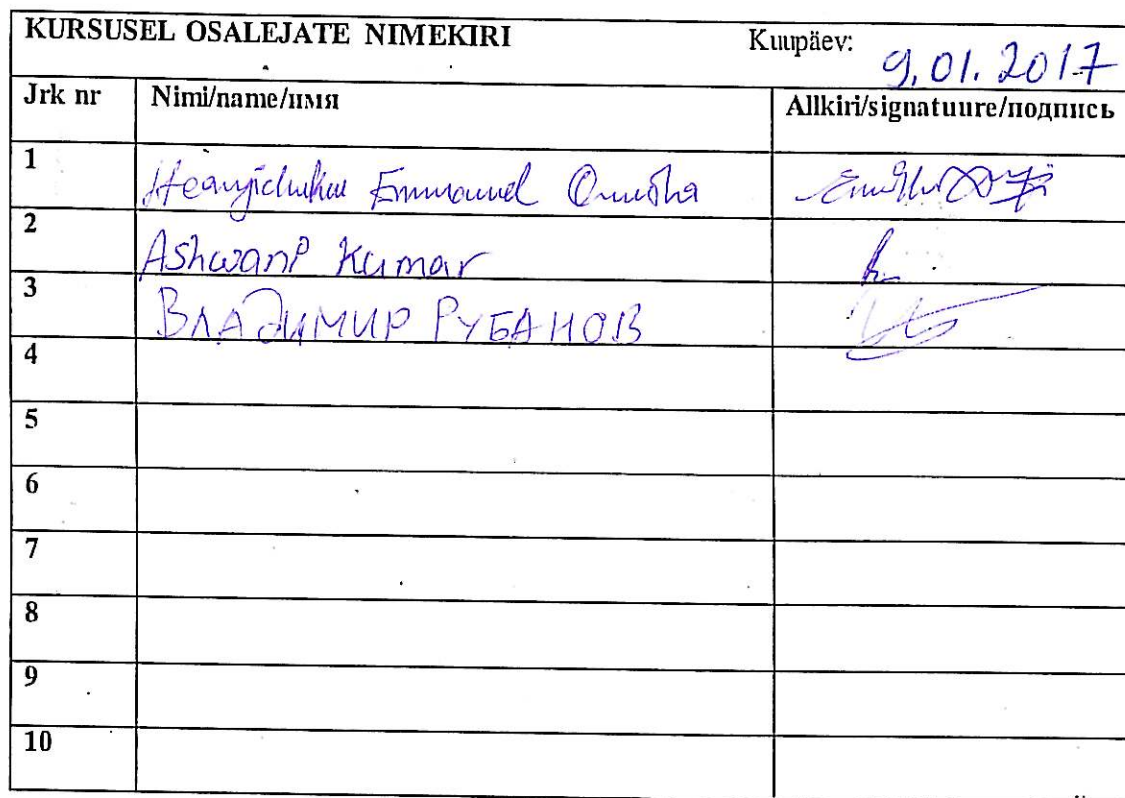 KURSUSEL OSALEJATE NIMEKIRI Kuupäev: 9.01.2017
Jrk nr Nimi/name/имя Allkiri/signatuure/подпись
1 Emmanuel
2 Ashwani Kumar
3 ВЛАДИМИР РУБАНОВ
4
5
6
7
8
9
10